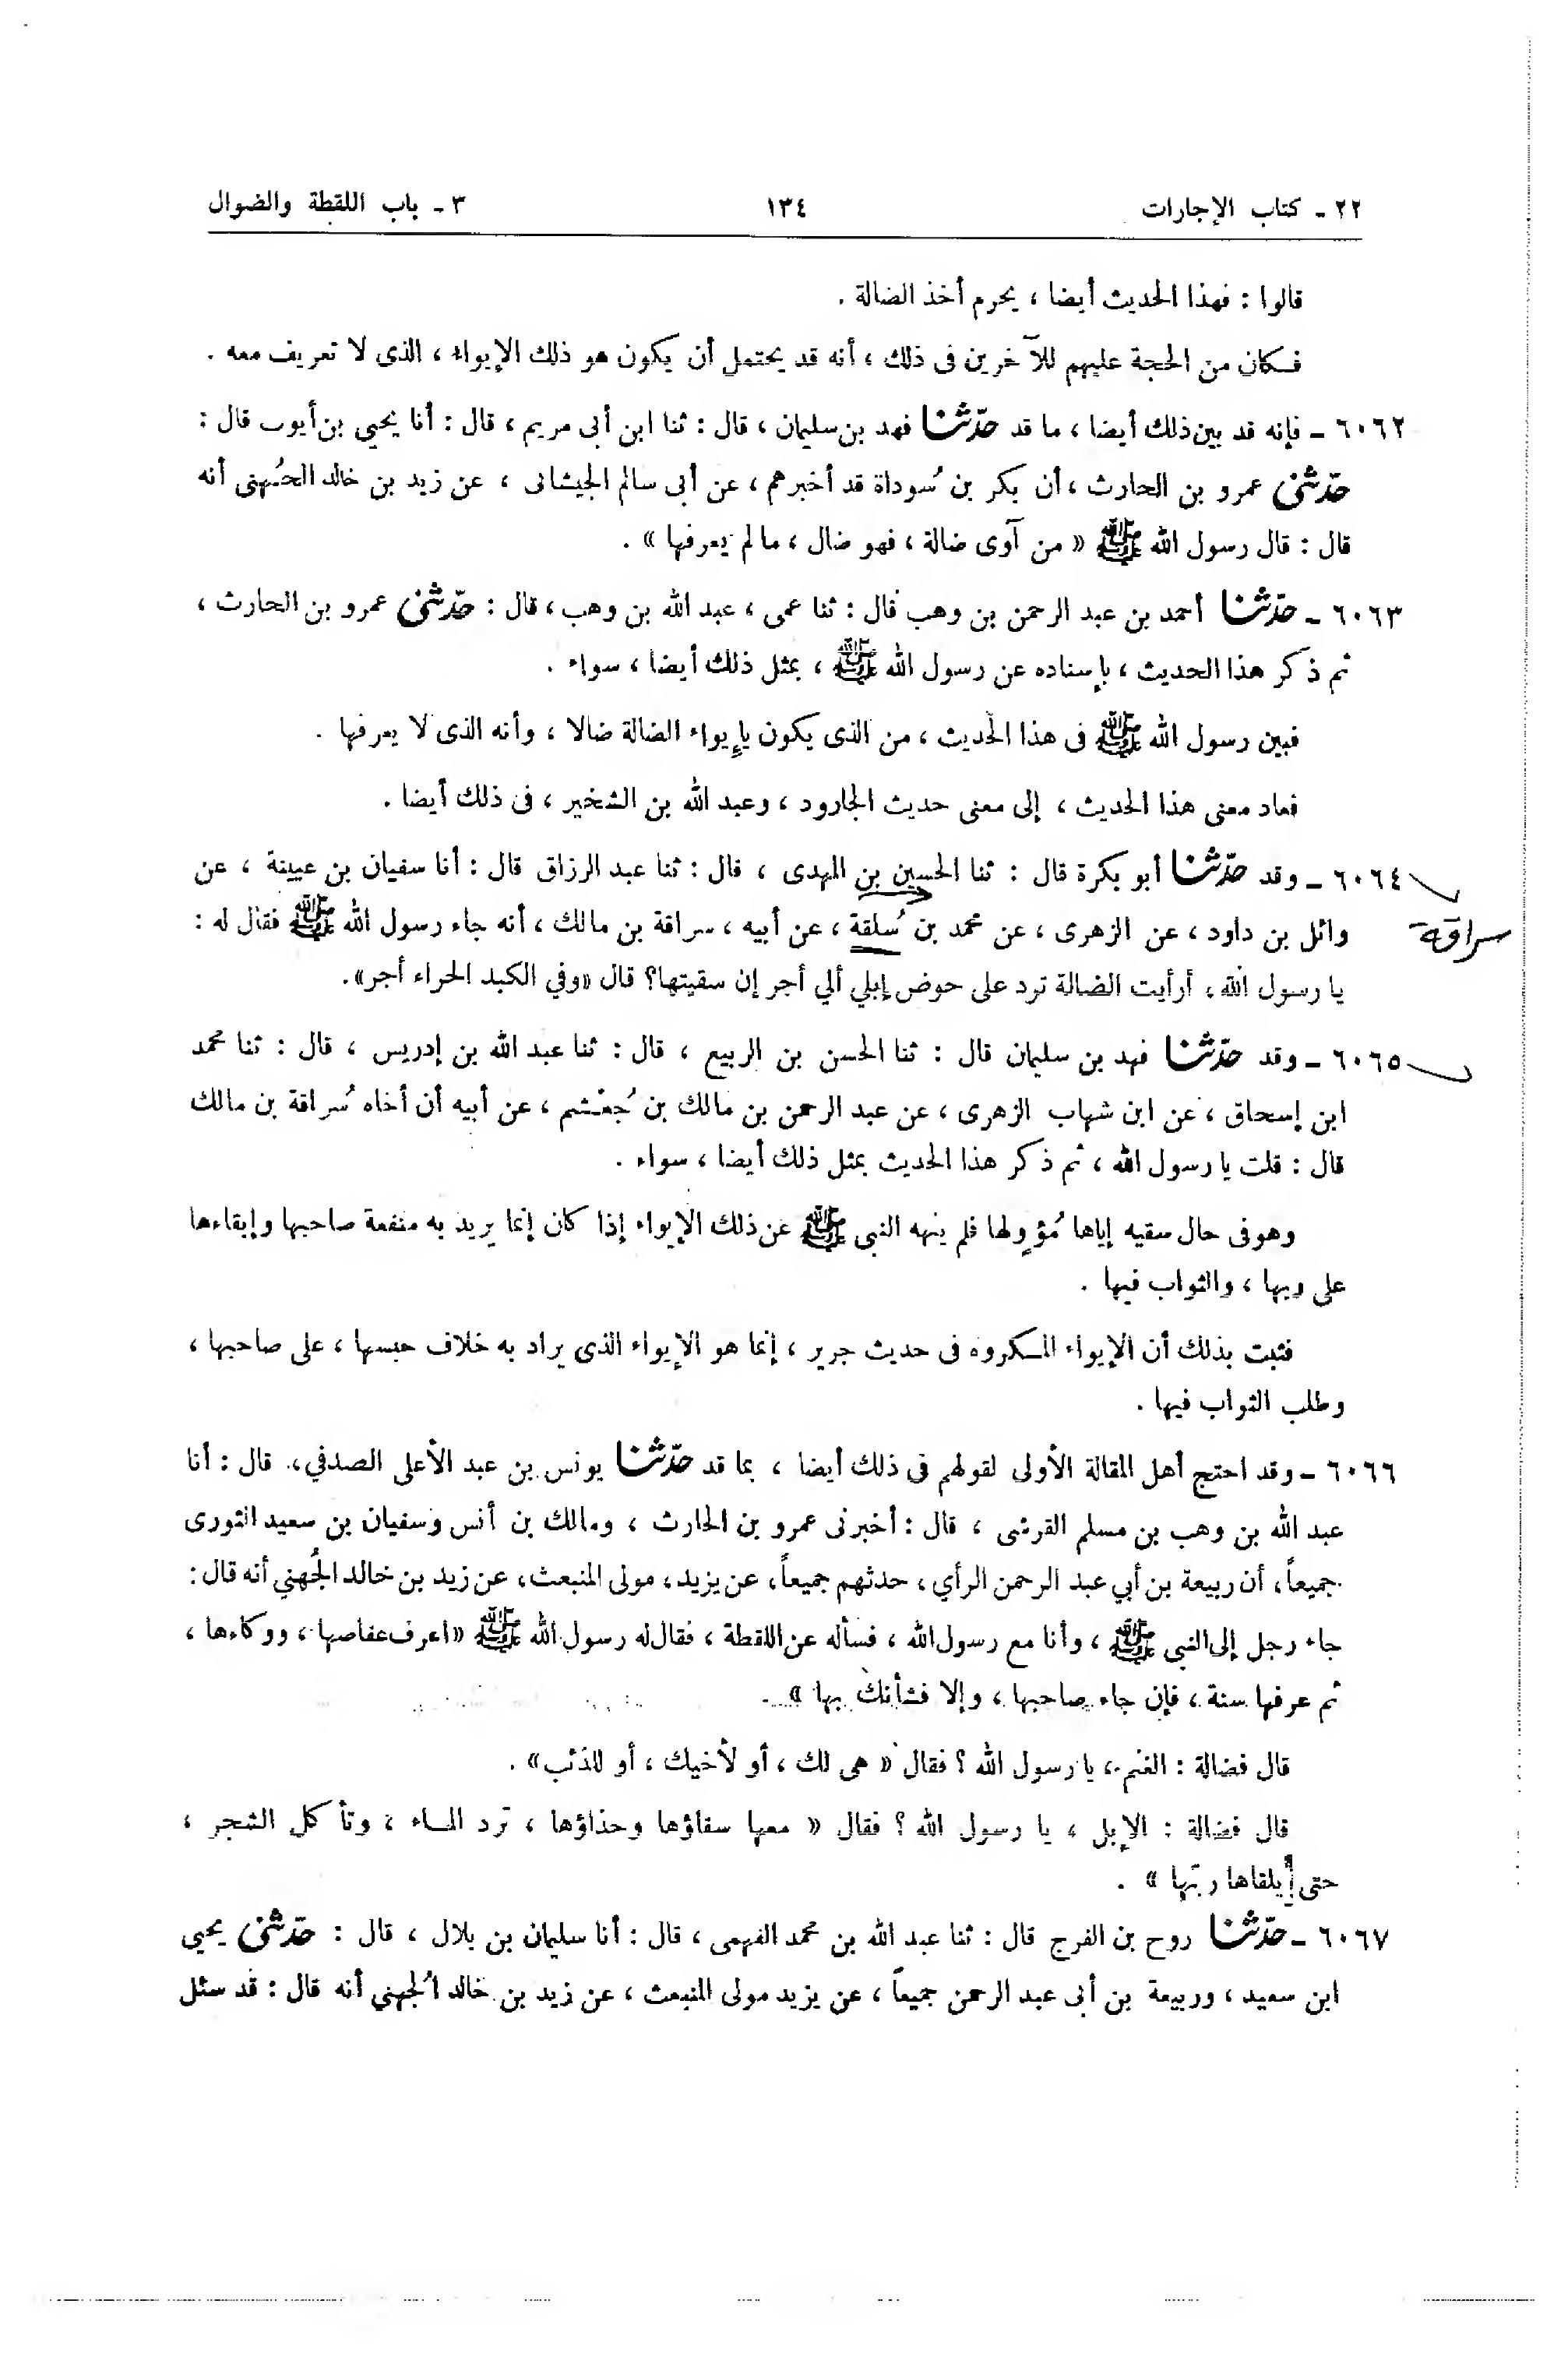 ٢٢ ـ كتاب الإجارات ١٣٤ ٣ ـ باب اللقطة والضوال
قالوا : فهذا الحديث أيضا ، يحرم أخذ الضالة .
فكان من الحجة عليهم للآخرين فى ذلك ، أنه قد يحتمل أن يكون هو ذلك الإيواء ، الذى لا تعريف معه .
٦٠٦٢ ـ فإنه قد بين ذلك أيضا ، ما قد حدّثنا فهد بن سليمان ، قال : ثنا ابن أبى مريم ، قال : أنا يحيى بن أيوب قال :
حدّثنى عمرو بن الحارث ، أن بكر بن سُوداة قد أخبرهم ، عن أبى سالم الجيشانى ، عن زيد بن خالد الجُهنى أنه
قال : قال رسول الله ﷺ « من آوى ضالة ، فهو ضال ، مالم يعرفها » .
٦٠٦٣ ـ حدّثنا أحمد بن عبد الرحمن بن وهب قال : ثنا عمى ، عبد الله بن وهب ، قال : حدّثنى عمرو بن الحارث ،
ثم ذكر هذا الحديث ، بإسناده عن رسول الله ﷺ ، بمثل ذلك أيضا ، سواء .
فبين رسول الله ﷺ فى هذا الحديث ، من الذى يكون بإيواء الضالة ضالا ، وأنه الذى لا يعرفها .
فعاد معنى هذا الحديث ، إلى معنى حديث الجارود ، وعبد الله بن الشخير ، فى ذلك أيضا .
٦٠٦٤ ـ وقد حدّثنا أبو بكرة قال : ثنا الحسين بن المهدى ، قال : ثنا عبد الرزاق قال : أنا سفيان بن عيينة ، عن
وائل بن داود ، عن الزهرى ، عن محمد بن سُلقة ، عن أبيه ، سراقة بن مالك ، أنه جاء رسول الله ﷺ فقال له :
سراقة
يا رسول الله ، أرأيت الضالة ترد على حوض إبلي ألي أجر إن سقيتها؟ قال «وفي الكبد الحراء أجر».
٦٠٦٥ ـ وقد حدّثنا فهد بن سليمان قال : ثنا الحسن بن الربيع ، قال : ثنا عبد الله بن إدريس ، قال : ثنا محمد
ابن إسحاق ، عن ابن شهاب الزهرى ، عن عبد الرحمن بن مالك بن جُعْشم ، عن أبيه أن أخاه سُراقة بن مالك
قال : قلت يا رسول الله ، ثم ذكر هذا الحديث بمثل ذلك أيضا ، سواء .
وهوفى حال سقيه إياها مُؤوٍلها فلم ينهه النبى ﷺ عن ذلك الإيواء إذا كان إنما يريد به منفعة صاحبها وإبقاءها
على ربها ، والثواب فيها .
فثبت بذلك أن الإيواء المكروه فى حديث جرير ، إنما هو الإيواء الذى يراد به خلاف حبسها ، على صاحبها ،
وطلب الثواب فيها .
٦٠٦٦ ـ وقد احتج أهل المقالة الأولى لقولهم فى ذلك أيضا ، بما قد حدّثنا يونس بن عبد الأعلى الصدفي ، قال : أنا
عبد الله بن وهب بن مسلم القرشى ، قال : أخبرنى عمرو بن الحارث ، ومالك بن أنس وسفيان بن سعيد الثورى
جميعاً ، أن ربيعة بن أبي عبد الرحمن الرأي ، حدثهم جميعاً ، عن يزيد ، مولى المنبعث ، عن زيد بن خالد الجُهني أنه قال :
جاء رجل إلى النبى ﷺ ، وأنا مع رسول الله ، فسأله عن اللقطة ، فقال له رسول الله ﷺ «اعرف عفاصها ، ووكاءها ،
ثم عرفها سنة ، فإن جاء صاحبها ، وإلا فشأنك بها » .
قال فضالة : الغنم ، يا رسول الله ؟ فقال « هى لك ، أو لأخيك ، أو للذئب» .
قال فضالة : الإبل ، يا رسول الله ؟ فقال « معها سقاؤها وحذاؤها ، ترد الماء ، وتأكل الشجر ،
حتى يلقاها ربّها » .
٦٠٦٧ ـ حدّثنا روح بن الفرج قال : ثنا عبد الله بن محمد الفهمى ، قال : أنا سليمان بن بلال ، قال : حدّثنى يحيى
ابن سعيد ، وربيعة بن أبى عبد الرحمن جميعاً ، عن يزيد مولى المنبعث ، عن زيد بن خالد الجُهني أنه قال : قد سئل